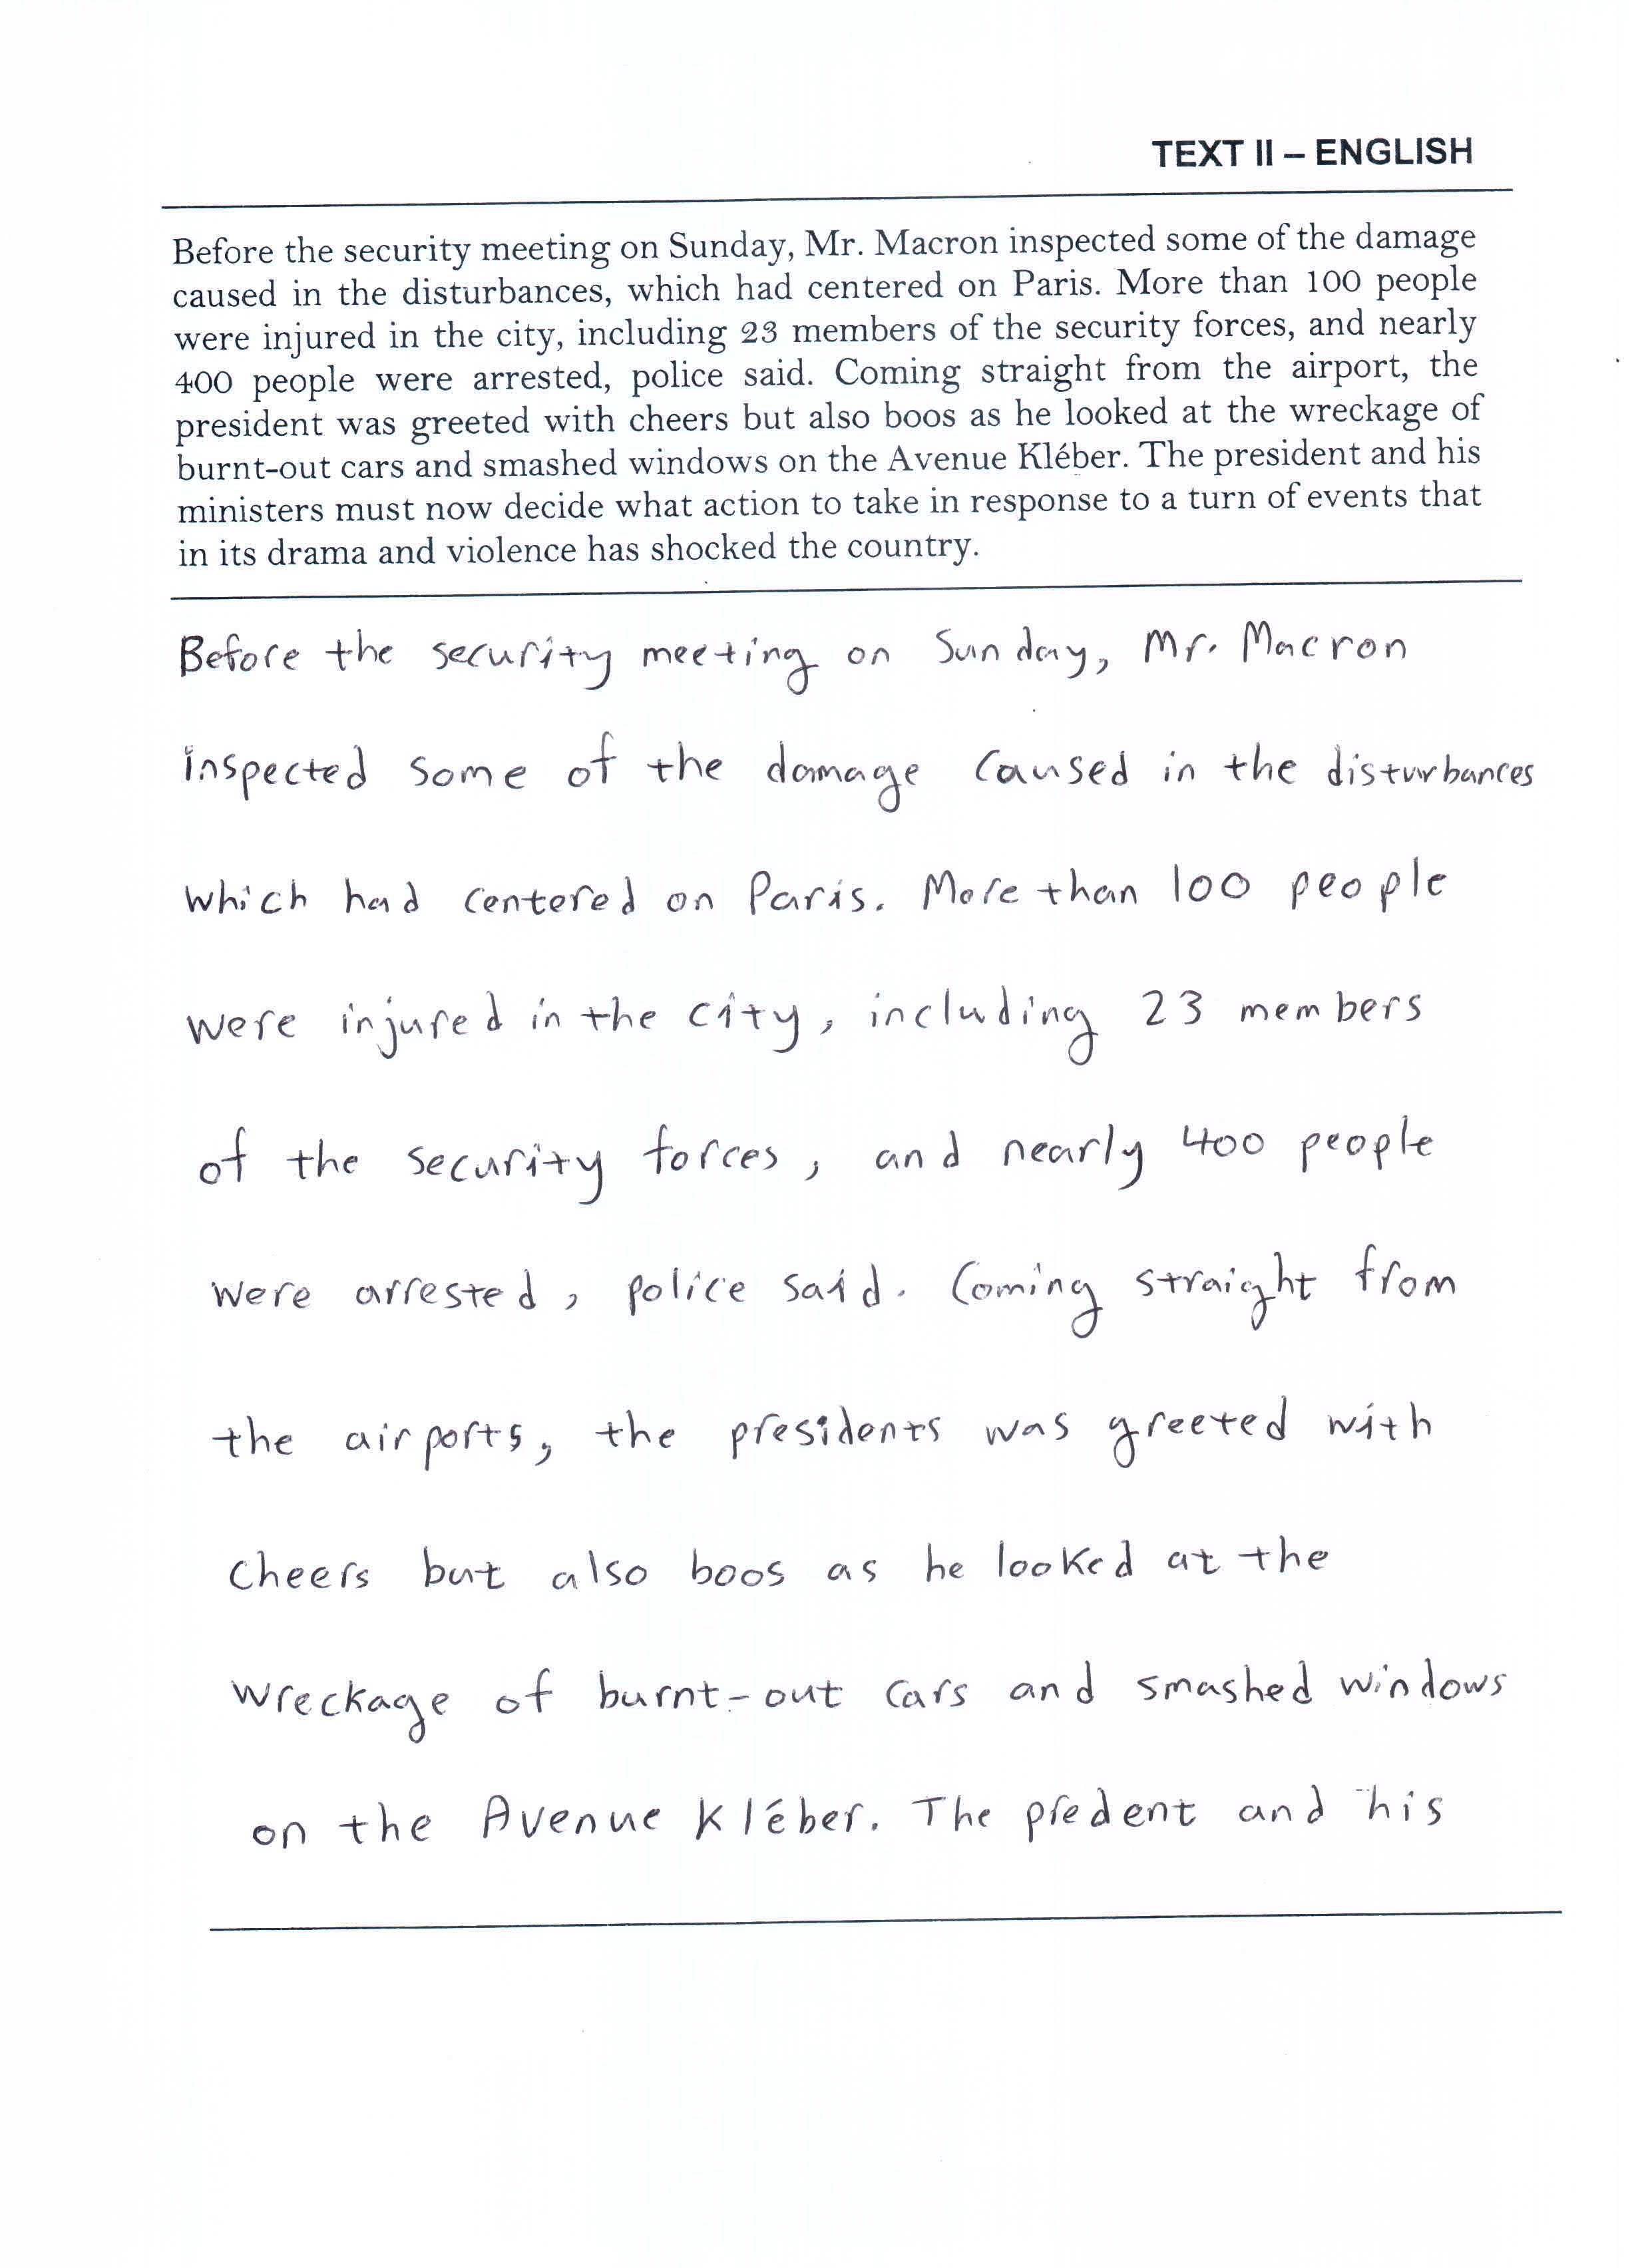 TEXT II – ENGLISH
Before the security meeting on Sunday, Mr. Macron inspected some of the damage
caused in the disturbances, which had centered on Paris. More than 100 people
were injured in the city, including 23 members of the security forces, and nearly
400 people were arrested, police said. Coming straight from the airport, the
president was greeted with cheers but also boos as he looked at the wreckage of
burnt-out cars and smashed windows on the Avenue Kléber. The president and his
ministers must now decide what action to take in response to a turn of events that
in its drama and violence has shocked the country.
Before the security meeting on Sunday, Mr. Macron
inspected some of the damage caused in the disturbances
which had centered on Paris. More than 100 people
were injured in the city, including 23 members
of the security forces, and nearly 400 people
were arrested, police said. Coming straight from
the airports, the presidents was greeted with
cheers but also boos as he looked at the
wreckage of burnt-out cars and smashed windows
on the Avenue Kléber. The predent and his